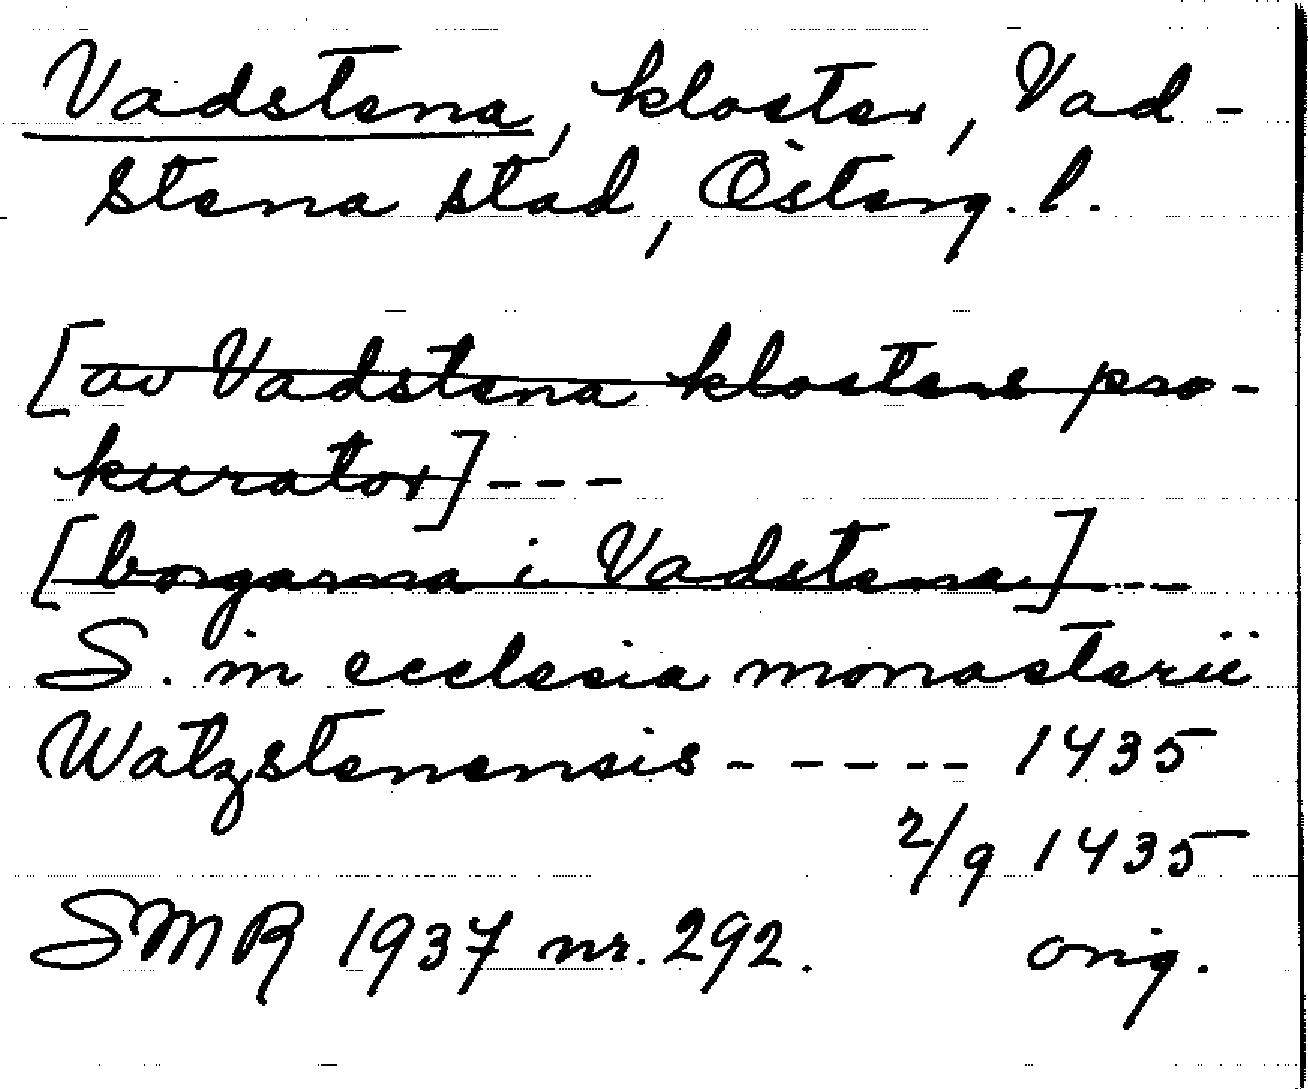 Vadstena, kloster, Vad-
stena stad, Österg. l.
[av Vadstena klosters pro-
kurator]---
[borgarna i Vadstena]---
S. in ecclesia monasterii
Watzstenensis ----- 1435
2/9 1435
SMR 1937 nr. 292. orig.